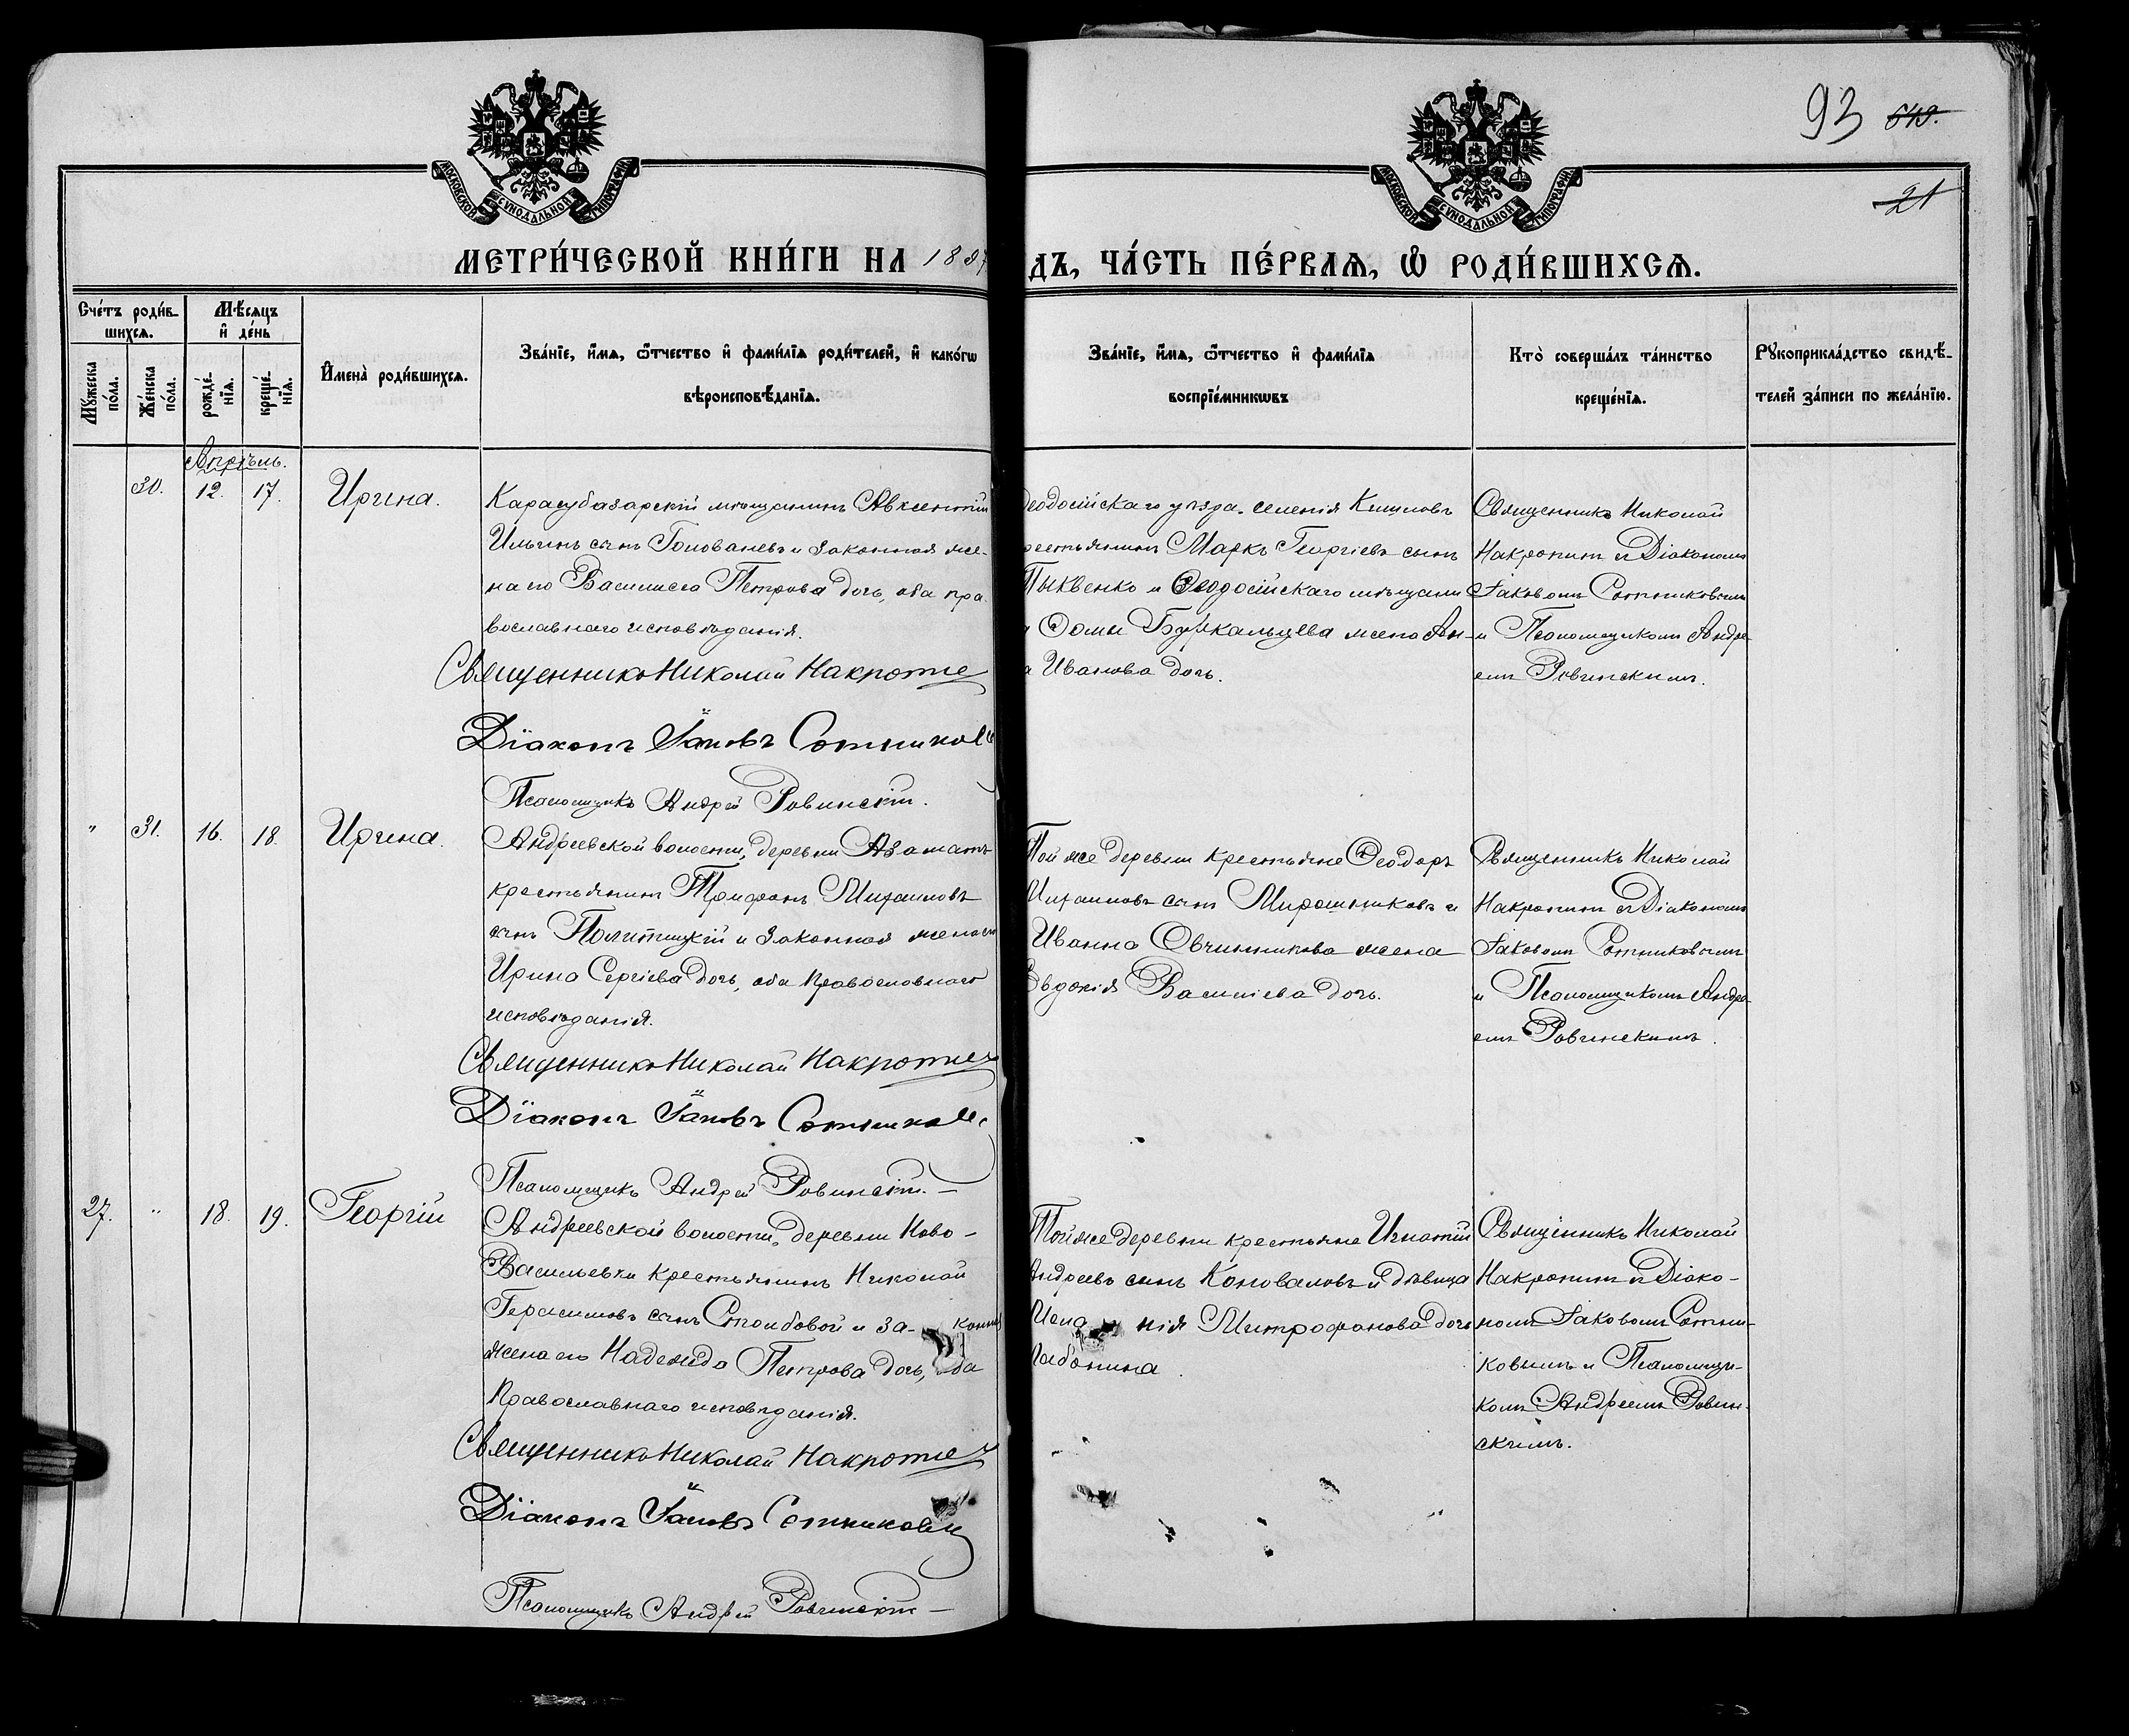 93 649.
21
МОСКОВСКОЙ СѴНОДАЛЬНОЙ ТИПОГРАФІИ
МОСКОВСКОЙ СѴНОДАЛЬНОЙ ТИПОГРАФІИ
МЕТРИ́ЧЕСКОЙ КНИ́ГИ НА 1897
ДЪ, ЧА́СТЬ ПЕ́РВАѦ, Ѡ҆ РОДИ́ВШИХСѦ.
Сче́тъ роди́в-
шихсѧ.
Мѣ́сѧцъ
и҆ де́нь
Мꙋ́жеска
по́ла.
Же́нска
по́ла.
рожде́-
нїѧ.
креще́-
нїѧ.
И҆мена̀ роди́вшихсѧ.
Зва́нїе, и҆́мѧ, ѻ҆́тчество и҆ фами́лїѧ роди́телей, и҆ како́гѡ
вѣроисповѣ́данїѧ.
Зва́нїе, и҆́мѧ, ѻ҆́тчество и҆ фами́лїѧ
воспрїе́мникѡвъ
Кто̀ соверша́лъ та́инство
креще́нїѧ.
Рꙋкоприкла́дство свидѣ́-
телей за́писи по жела́нїю.
Апрѣль.
30. 12. 17. Ирина.
Карасубазарскій мѣщанинъ Авксентій
Ильинъ сынъ Голованевъ и законная же-
на его Василиса Петрова дочь, оба пра-
вославнаго исповѣданія.
Священникъ Николай Накропи
Діаконъ Іаковъ Сотников
Псаломщикъ Андрей Ровинскій.
еодосійскаго уѣзда, селенія
рестьянинъ Маркъ Георгіевъ сынъ
Пыквенко и Ѳеодосійскаго мѣщани
Ѳомы жена Ан-
а Иванова дочь.
Священникъ Николай
Накропинъ съ Діакономъ
Іаковомъ Сотниковымъ
и Псаломщикомъ Андре-
емъ Ровинскимъ.
" 31. 16. 18. Ирина.
Андреевской волости, деревни Азаматъ
крестьянинъ Трифонъ Михаиловъ
сынъ Политицкій и законная жена его
Ирина Сергіева дочь, оба Православнаго
исповѣданія.
Священникъ Николай Накропи
Діаконъ Іаковъ Сотников
Псаломщикъ Андрей Ровинскій.
Той же деревни крестьяне Ѳеодоръ
Михаиловъ сынъ Мирошниковъ и
Ивана Овчинникова жена
Евдокія Василіева дочь.
Священникъ Николай
Накропинъ съ Діакономъ
Іаковомъ Сотниковымъ
и Псаломщикомъ Андре-
емъ Ровинскимъ.
27. " 18. 19. Георгій
Андреевской волости, деревни Ново-
Васильевки крестьянинъ Николай
Герасимовъ сынъ Столбовой и за- конная
жена его Надежда Петрова дочь, оба
Православнаго исповѣданія.
Священникъ Николай Накропи
Діаконъ Іаковъ Сотниковъ
Псаломщикъ Андрей Ровинскій
Той же деревни крестьяне Игнатій
Андреевъ сынъ Коноваловъ и дѣвица
нія Митрофанова дочь
Священникъ Николай
Накропинъ съ Діако-
номъ Іаковомъ Сотни-
ковымъ и Псаломщи-
комъ Андреемъ Ровин-
скимъ.